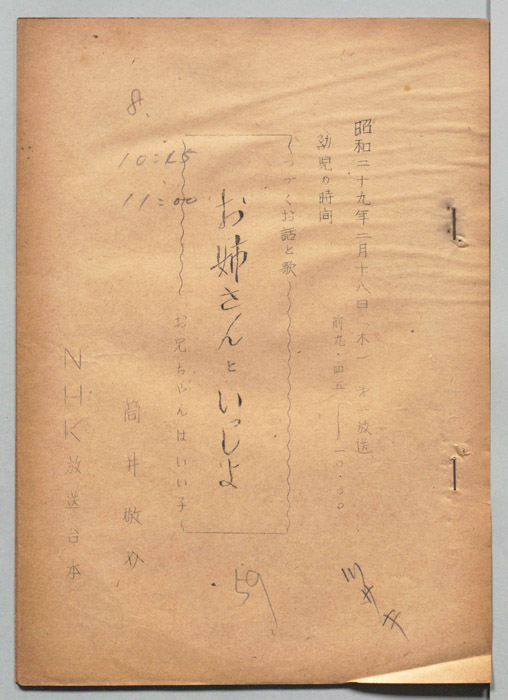 昭和二十九年二月十八日（木）第一放送
幼児の時間
前九・四五――一〇・〇〇
つづくお話と歌
お姉さんといっしよ
お兄ちゃんはいい子
8.
10:15
11:00
筒井敬
NHK放送台本
59